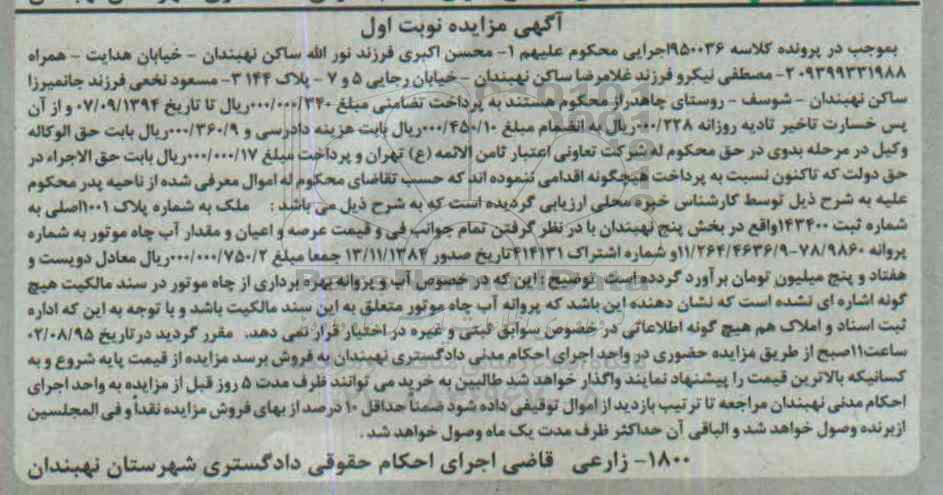 آگهی مزایده نوبت اول
بموجب در پرونده کلاسه ۹۵۰۰۳۶اجرایی محکوم علیهم ۱- محسن اکبری فرزند نور الله ساکن نهبندان - خیابان هدایت - همراه
۰۹۳۹۹۳۳۱۹۸۸ ۲- مصطفی نیکرو فرزند غلامرضا ساکن نهبندان - خیابان رجایی ۵ و ۷ - پلاک ۱۴۴ ۳- مسعود نخعی فرزند جانمیرزا
ساکن نهبندان - شوسف - روستای چاهدراز محکوم هستند به پرداخت تضامنی مبلغ ۰۰۰/۰۰۰/۳۴۰ریال تا تاریخ ۰۷/۰۹/۱۳۹۴ و از آن
پس خسارت تاخیر تادیه روزانه ۰۰۰/۲۲۸ریال به انضمام مبلغ ۰۰۰/۴۵۰/۱۰ریال بابت هزینه دادرسی و ۰۰۰/۳۶۰/۹ریال بابت حق الوکاله
وکیل در مرحله بدوی در حق محکوم له شرکت تعاونی اعتبار ثامن الائمه (ع) تهران و پرداخت مبلغ ۰۰۰/۰۰۰/۱۷ریال بابت حق الاجراء در
حق دولت که تاکنون نسبت به پرداخت هیچگونه اقدامی ننموده اند که حسب تقاضای محکوم له اموال معرفی شده از ناحیه پدر محکوم
علیه به شرح ذیل توسط کارشناس خبره محلی ارزیابی گردیده است که به شرح ذیل می باشد : ملک به شماره پلاک ۱۰۰۱اصلی به
شماره ثبت ۱۴۳۴۰۰واقع در بخش پنج نهبندان با در نظر گرفتن تمام جوانب فنی و قیمت عرصه و اعیان و مقدار آب چاه موتور به شماره
پروانه ۷۸/۹۸۶۰-۱۱/۲۶۴/۴۶۳۶/۹و شماره اشتراک ۴۱۴۱۳۱تاریخ صدور ۱۳/۱۱/۱۳۸۴ جمعا مبلغ ۰۰۰/۰۰۰/۷۵۰/۲ریال معادل دویست و
هفتاد و پنج میلیون تومان برآورد گردده است. توضیح : این که در خصوص آب و پروانه بهره برداری از چاه موتور در سند مالکیت هیچ
گونه اشاره ای نشده است که نشان دهنده این باشد که پروانه آب چاه موتور متعلق به این سند مالکیت باشد و با توجه به این که اداره
ثبت اسناد و املاک هم هیچ گونه اطلاعاتی در خصوص سوابق ثبتی و غیره در اختیار قرار نمی دهد. مقرر گردید در تاریخ ۰۲/۰۸/۹۵
ساعت۱۱صبح از طریق مزایده حضوری در واحد اجرای احکام مدنی دادگستری نهبندان به فروش برسد مزایده از قیمت پایه شروع و به
کسانیکه بالاترین قیمت را پیشنهاد نمایند واگذار خواهد شد طالبین به خرید می توانند ظرف مدت ۵ روز قبل از مزایده به واحد اجرای
احکام مدنی نهبندان مراجعه تا ترتیب بازدید از اموال توقیفی داده شود ضمنا حداقل ۱۰ درصد از بهای فروش مزایده نقداً و فی المجلسین
ازبرنده وصول خواهد شد و الباقی آن حداکثر ظرف مدت یک ماه وصول خواهد شد .
۱۸۰۰- زارعی قاضی اجرای احکام حقوقی دادگستری شهرستان نهبندان